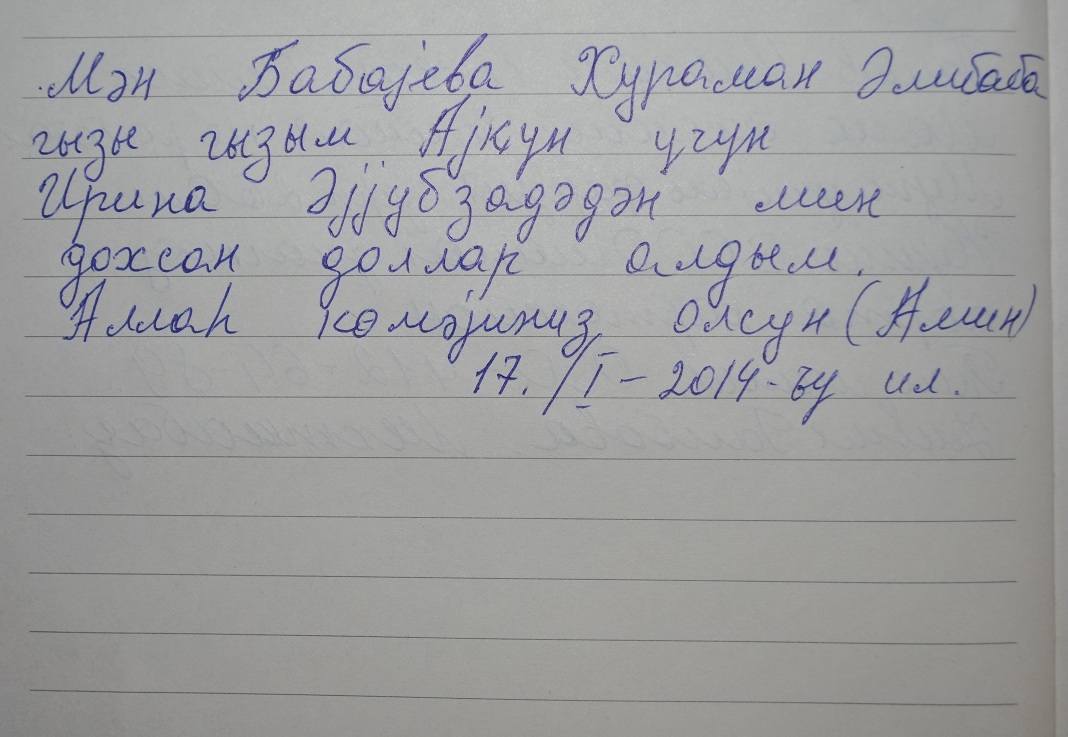 Мән Бабајева Хураман Әлибаба
гызы гызым Ајҝун учун
Ирина Әјјубзадәдән мин
дохсан доллар алдым.
Аллаһ көмәјиниз олсун (Амин)
17. / I – 2014-ъу ил.